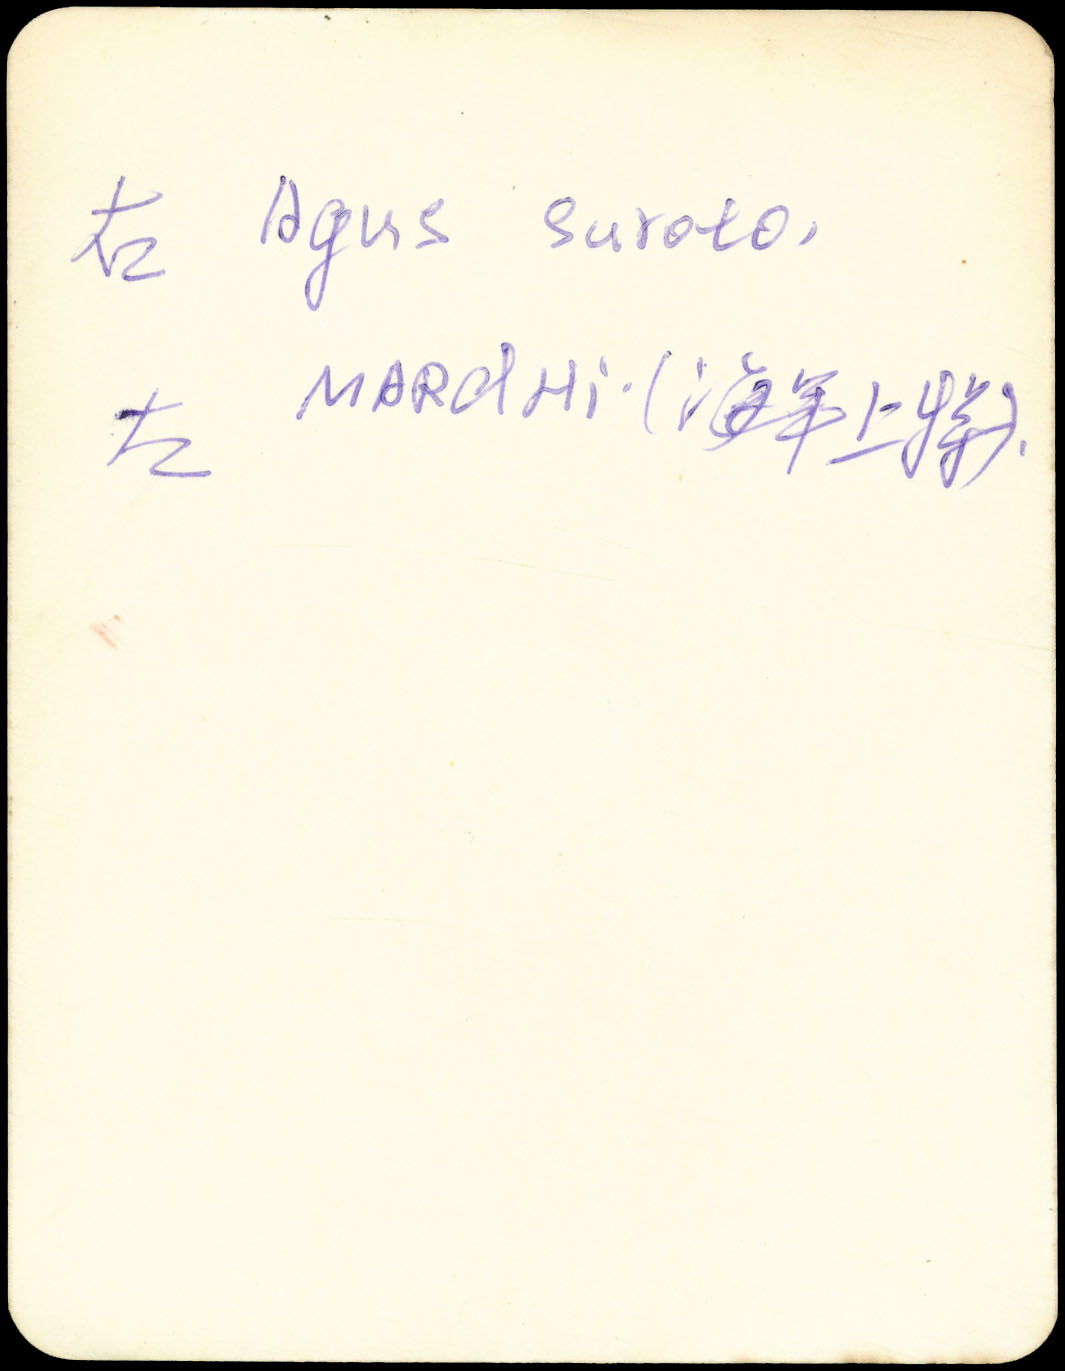 右 Agus suroto.
左 MARdHi.(海军上将).